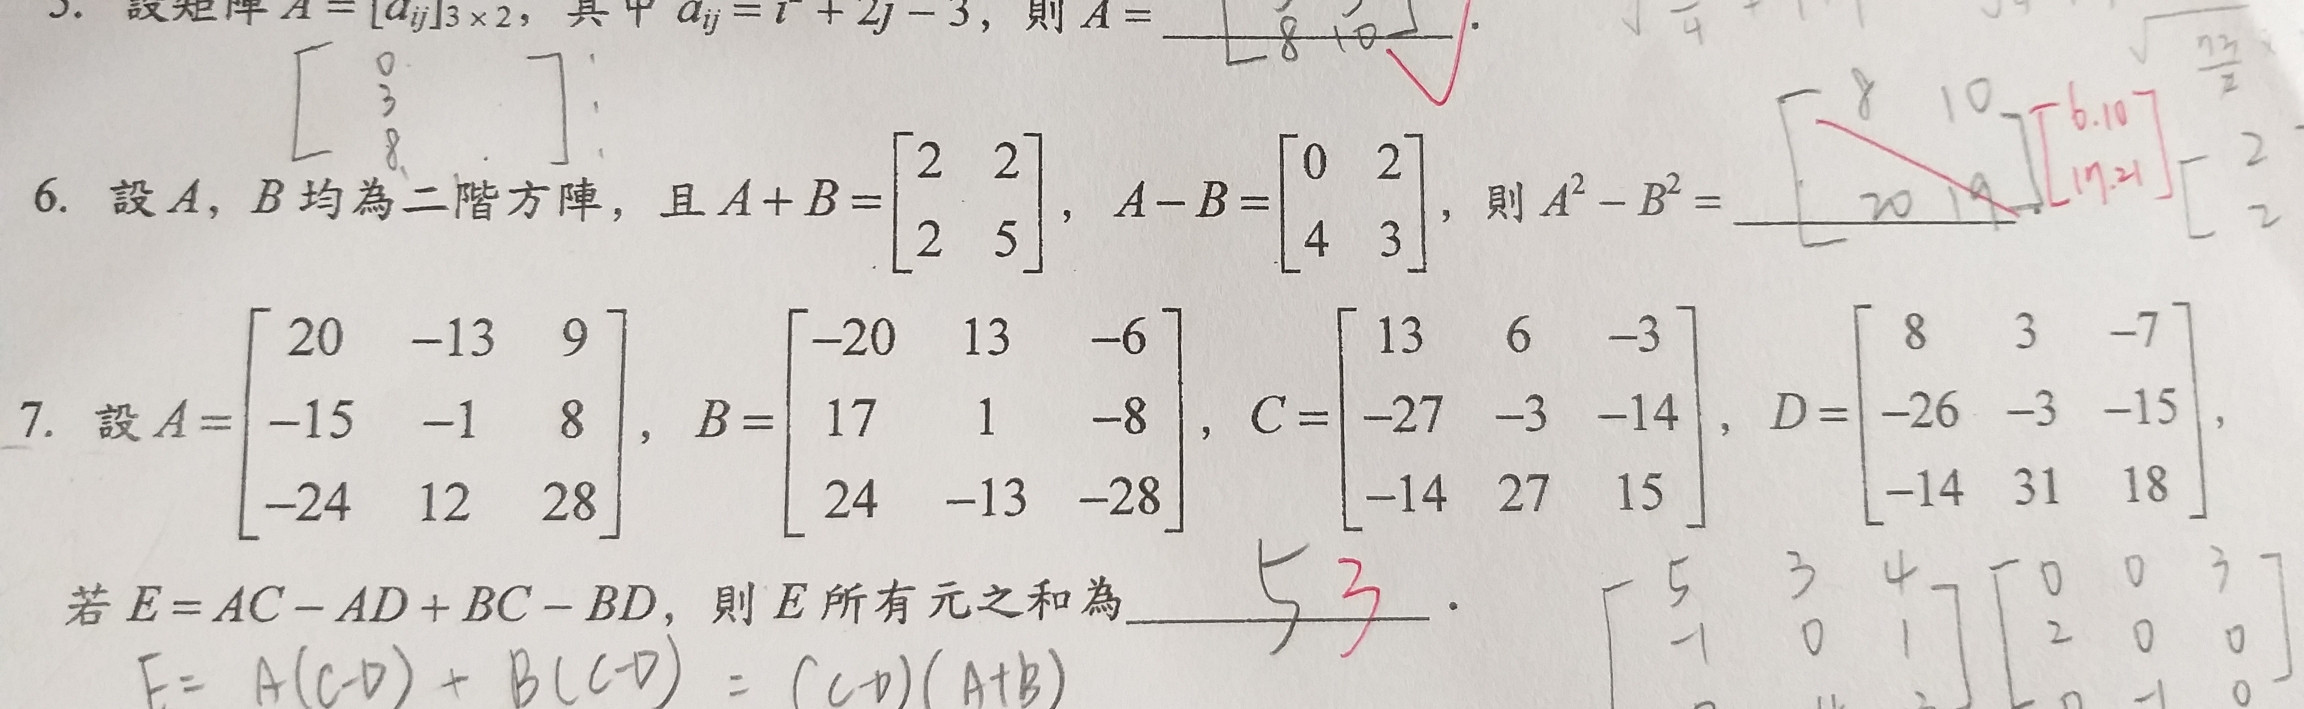 5. 設矩陣 A = [a_ij]_3×2, 其中 a_ij = i² + 2j − 3, 則 A = [ 8 10 ] .
[ 0 3 8 ]
6. 設 A, B 均為二階方陣, 且 A + B = [ 2 2 ; 2 5 ], A − B = [ 0 2 ; 4 3 ], 則 A² − B² = [ 8 10 ; 20 19 ] . [ 6.10 ; 17.21 ] [ 2 ; 2
7. 設 A = [ 20 −13 9 ; −15 −1 8 ; −24 12 28 ], B = [ −20 13 −6 ; 17 1 −8 ; 24 −13 −28 ], C = [ 13 6 −3 ; −27 −3 −14 ; −14 27 15 ], D = [ 8 3 −7 ; −26 −3 −15 ; −14 31 18 ],
若 E = AC − AD + BC − BD, 則 E 所有元之和為 5 3 .
E = A(C-D) + B(C-D) = (C-D)(A+B)
[ 5 3 4 ; -1 0 1 ] [ 0 0 3 ; 2 0 0 ; 0 -1 0 ]